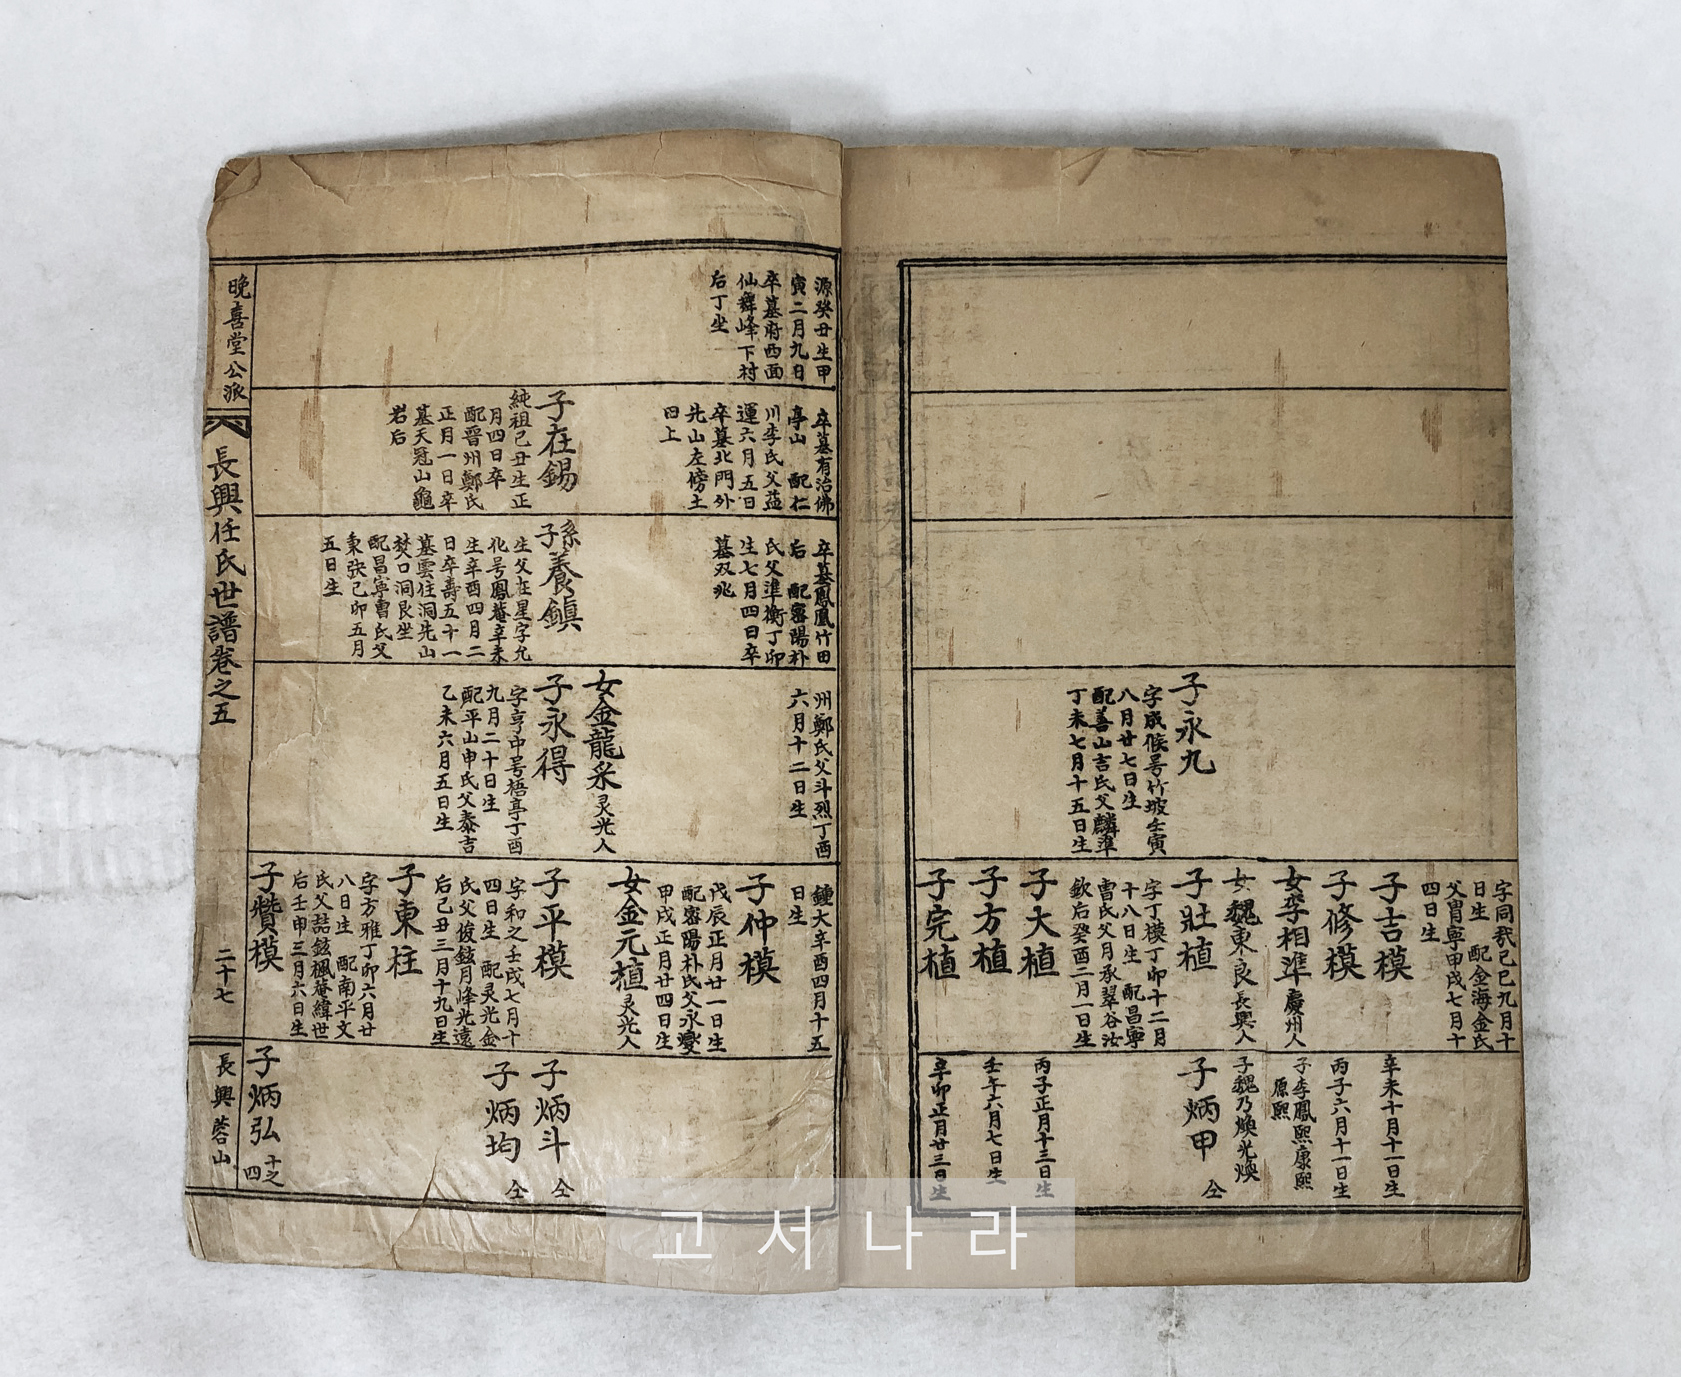 子永九
字成候号竹坡壬寅
八月廿七日生
配善山吉氏父麟準
丁未七月十五日生
字同哉己巳九月十
日生 配金海金氏
父胃寧甲戌七月十
四日生
子吉模
子修模
女李相準慶州人
女魏東良長興人
子壯植
字丁模丁卯十二月
十八日生 配昌寧
曺氏父月承翠谷汝
欽后癸酉二月一日生
子大植
子方植
子完植
辛未十月十一日生
丙子六月十一日生
子李鳳熙康熙
原熙
子魏乃煥光煥
子炳甲 仝
丙子正月十三日生
壬午六月七日生
辛卯正月廿三日生
源癸丑生甲
寅二月九日
卒墓府西面
仙舞峰下村
后丁坐
卒墓有治佛
亭山 配仁
川李氏父益
運六月五日
卒墓北門外
先山左傍土
日上
子在錫
純祖己丑生正
月四日卒
配晋州鄭氏
正月一日卒
墓天冠山龜
岩后
卒墓鳳凰竹田
后 配密陽朴
氏父準衡丁卯
生七月四日卒
墓双兆
孫子養鎭
生父在星字允
化号鳳菴辛未
生辛酉四月二
日卒壽五十一
墓雲住洞先山
焚口洞艮坐
配昌寧曺氏父
秉弼己卯五月
五日生
州鄭氏父斗烈丁酉
六月十二日生
女金龍采灵光人
子永得
字亨中号梧亭丁酉
九月二十日生
配平山申氏父泰吉
乙未六月五日生
鍾大辛酉四月十五
日生
子仲模
戊辰正月廿一日生
配密陽朴氏父永燮
甲戌正月廿四日生
女金元植灵光人
子平模
字和之壬戌七月十
四日生 配灵光金
氏父俊鉉月峰光遠
后己丑三月十九日生
子東柱
字方雅丁卯六月廿
八日生 配南平文
氏父喆鉉楓菴緯世
后壬申三月六日生
子贊模
子炳斗 仝
子炳均 仝
子炳弘 十之四
晩喜堂公派
長興任氏世譜卷之五
二十七
長興蓉山
고서나라